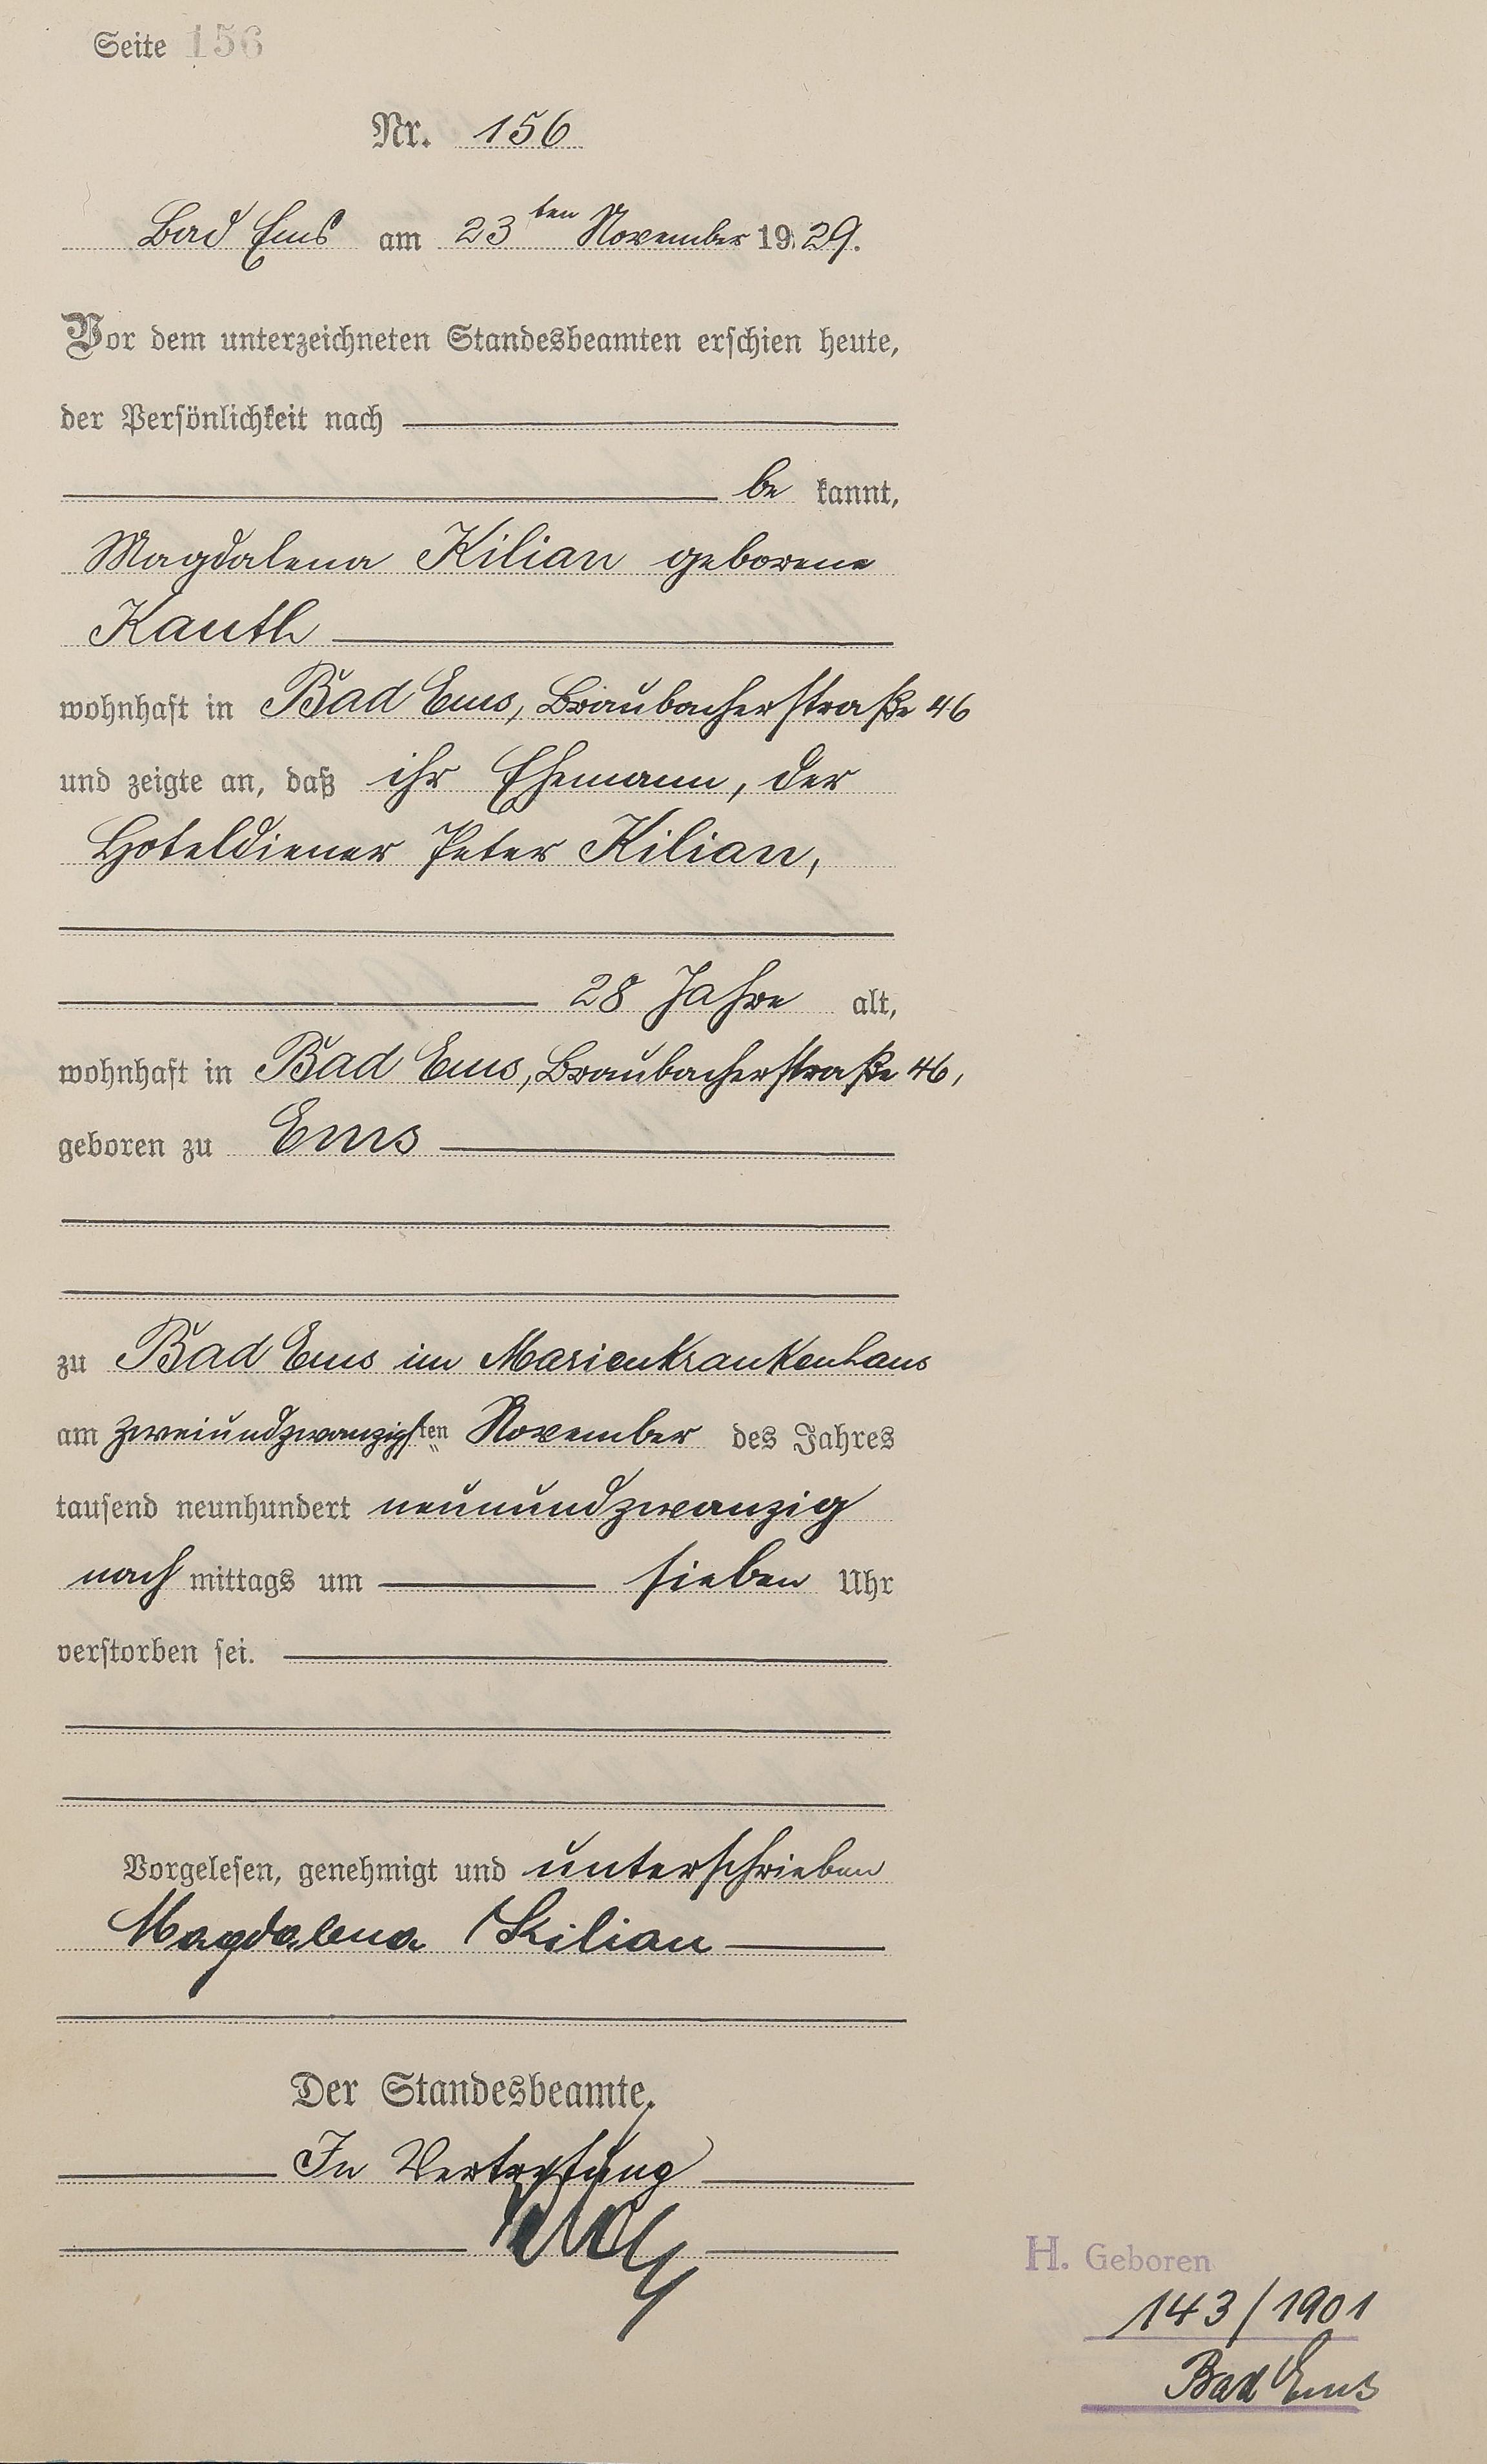 Seite 156
Nr. 156
Bad Ems am 23ten November 1929.
Vor dem unterzeichneten Standesbeamten erschien heute,
der Persönlichkeit nach
be kannt,
Magdalena Kilian geborene
Kauth
wohnhaft in Bad Ems, Braubacherstraße 46
und zeigte an, daß ihr Ehemann, der
Hoteldiener Peter Kilian,
28 Jahre alt,
wohnhaft in Bad Ems, Braubacherstraße 46,
geboren zu Ems
zu Bad Ems im Marienkrankenhaus
am zweiundzwanzigsten November des Jahres
tausend neunhundert neunundzwanzig
nach mittags um sieben Uhr
verstorben sei.
Vorgelesen, genehmigt und unterschrieben
Magdalena Kilian
Der Standesbeamte.
In Vertretung
H. Geboren
143/1901
Bad Ems